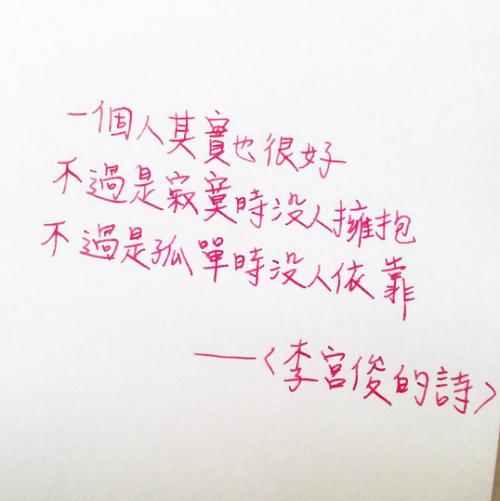 一個人其實也很好
不過是寂寞時没人擁抱
不過是孤單時没人依靠
——〈李宮俊的詩〉